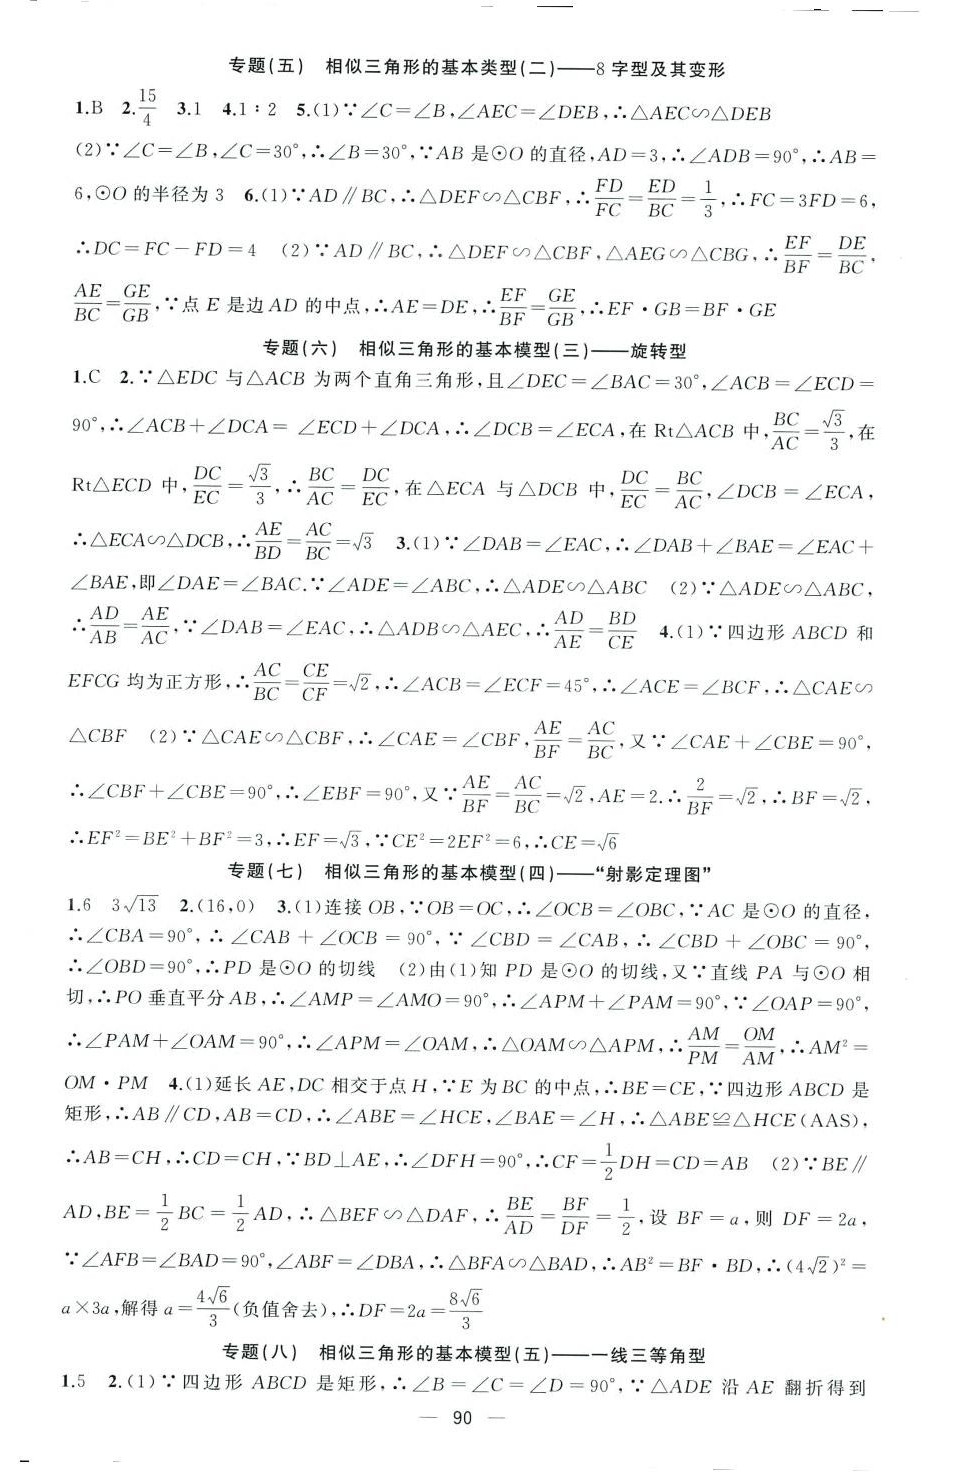 专题(五) 相似三角形的基本类型(二)——8字型及其变形
1.B 2.15/4 3.1 4.1∶2 5.(1)∵∠C=∠B,∠AEC=∠DEB,∴△AEC∽△DEB
(2)∵∠C=∠B,∠C=30°,∴∠B=30°,∵AB 是⊙O 的直径,AD=3,∴∠ADB=90°,∴AB=
6,⊙O 的半径为 3 6.(1)∵AD∥BC,∴△DEF∽△CBF,∴FD/FC=ED/BC=1/3,∴FC=3FD=6,
∴DC=FC-FD=4 (2)∵AD∥BC,∴△DEF∽△CBF,△AEG∽△CBG,∴EF/BF=DE/BC,
AE/BC=GE/GB,∵点 E 是边 AD 的中点,∴AE=DE,∴EF/BF=GE/GB,∴EF·GB=BF·GE
专题(六) 相似三角形的基本模型(三)——旋转型
1.C 2.∵△EDC 与△ACB 为两个直角三角形,且∠DEC=∠BAC=30°,∠ACB=∠ECD=
90°,∴∠ACB+∠DCA=∠ECD+∠DCA,∴∠DCB=∠ECA,在 Rt△ACB 中,BC/AC=√3/3,在
Rt△ECD 中,DC/EC=√3/3,∴BC/AC=DC/EC,在△ECA 与△DCB 中,DC/EC=BC/AC,∠DCB=∠ECA,
∴△ECA∽△DCB,∴AE/BD=AC/BC=√3 3.(1)∵∠DAB=∠EAC,∴∠DAB+∠BAE=∠EAC+
∠BAE,即∠DAE=∠BAC.∵∠ADE=∠ABC,∴△ADE∽△ABC (2)∵△ADE∽△ABC,
∴AD/AB=AE/AC,∵∠DAB=∠EAC,∴△ADB∽△AEC,∴AD/AE=BD/CE 4.(1)∵四边形 ABCD 和
EFCG 均为正方形,∴AC/BC=CE/CF=√2,∴∠ACB=∠ECF=45°,∴∠ACE=∠BCF,∴△CAE∽
△CBF (2)∵△CAE∽△CBF,∴∠CAE=∠CBF,AE/BF=AC/BC,又∵∠CAE+∠CBE=90°,
∴∠CBF+∠CBE=90°,∴∠EBF=90°,又∵AE/BF=AC/BC=√2,AE=2.∴2/BF=√2,∴BF=√2,
∴EF²=BE²+BF²=3,∴EF=√3,∵CE²=2EF²=6,∴CE=√6
专题(七) 相似三角形的基本模型(四)——“射影定理图”
1.6 3√13 2.(16,0) 3.(1)连接 OB,∵OB=OC,∴∠OCB=∠OBC,∵AC 是⊙O 的直径,
∴∠CBA=90°,∴∠CAB+∠OCB=90°,∵∠CBD=∠CAB,∴∠CBD+∠OBC=90°,
∴∠OBD=90°,∴PD 是⊙O 的切线 (2)由(1)知 PD 是⊙O 的切线,又∵直线 PA 与⊙O 相
切,∴PO 垂直平分 AB,∴∠AMP=∠AMO=90°,∴∠APM+∠PAM=90°,∵∠OAP=90°,
∴∠PAM+∠OAM=90°,∴∠APM=∠OAM,∴△OAM∽△APM,∴AM/PM=OM/AM,∴AM²=
OM·PM 4.(1)延长 AE,DC 相交于点 H,∵E 为 BC 的中点,∴BE=CE,∵四边形 ABCD 是
矩形,∴AB∥CD,AB=CD,∴∠ABE=∠HCE,∠BAE=∠H,∴△ABE≌△HCE(AAS),
∴AB=CH,∴CD=CH,∵BD⊥AE,∴∠DFH=90°,∴CF=1/2DH=CD=AB (2)∵BE∥
AD,BE=1/2BC=1/2AD,∴△BEF∽△DAF,∴BE/AD=BF/DF=1/2,设 BF=a,则 DF=2a,
∵∠AFB=∠BAD=90°,∠ABF=∠DBA,∴△BFA∽△BAD,∴AB²=BF·BD,∴(4√2)²=
a×3a,解得 a=4√6/3(负值舍去),∴DF=2a=8√6/3
专题(八) 相似三角形的基本模型(五)——一线三等角型
1.5 2.(1)∵四边形 ABCD 是矩形,∴∠B=∠C=∠D=90°,∵△ADE 沿 AE 翻折得到
— 90 —